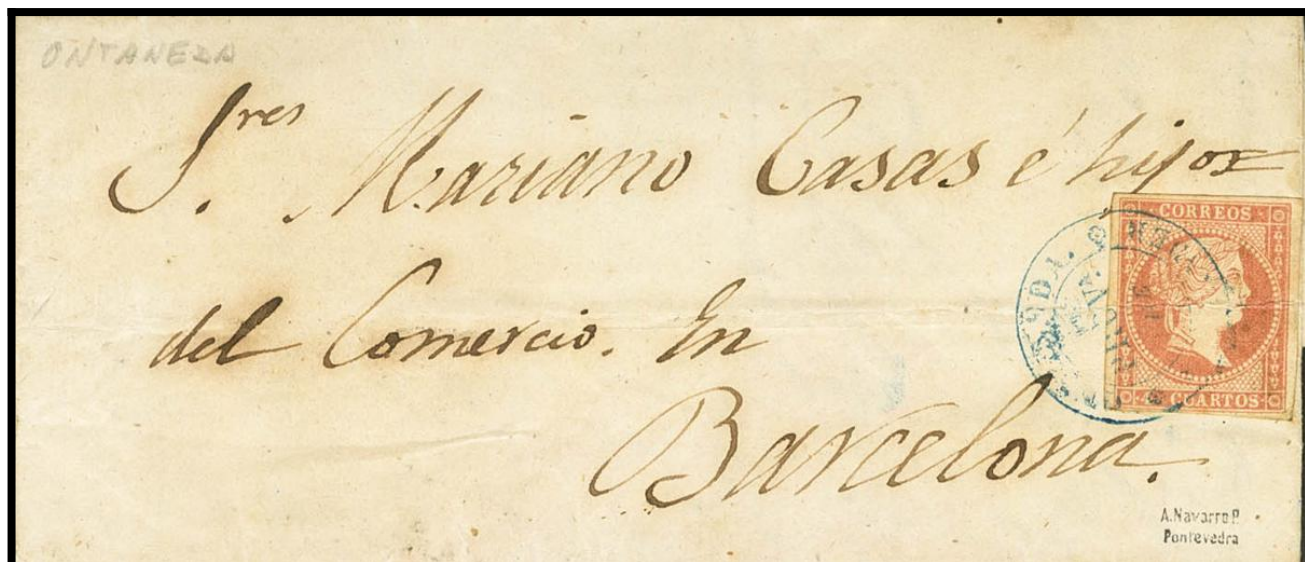 ONTANEDA
S.res Mariano Casas é hijos
del Comercio. En
Barcelona.
CORREOS
4 CUARTOS
A. Navarro P.
Pontevedra